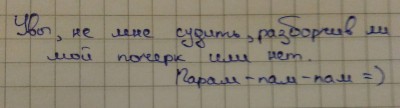 Увы, не мне судить, разборчив ли
мой почерк или нет.
Парам-пам-пам =)